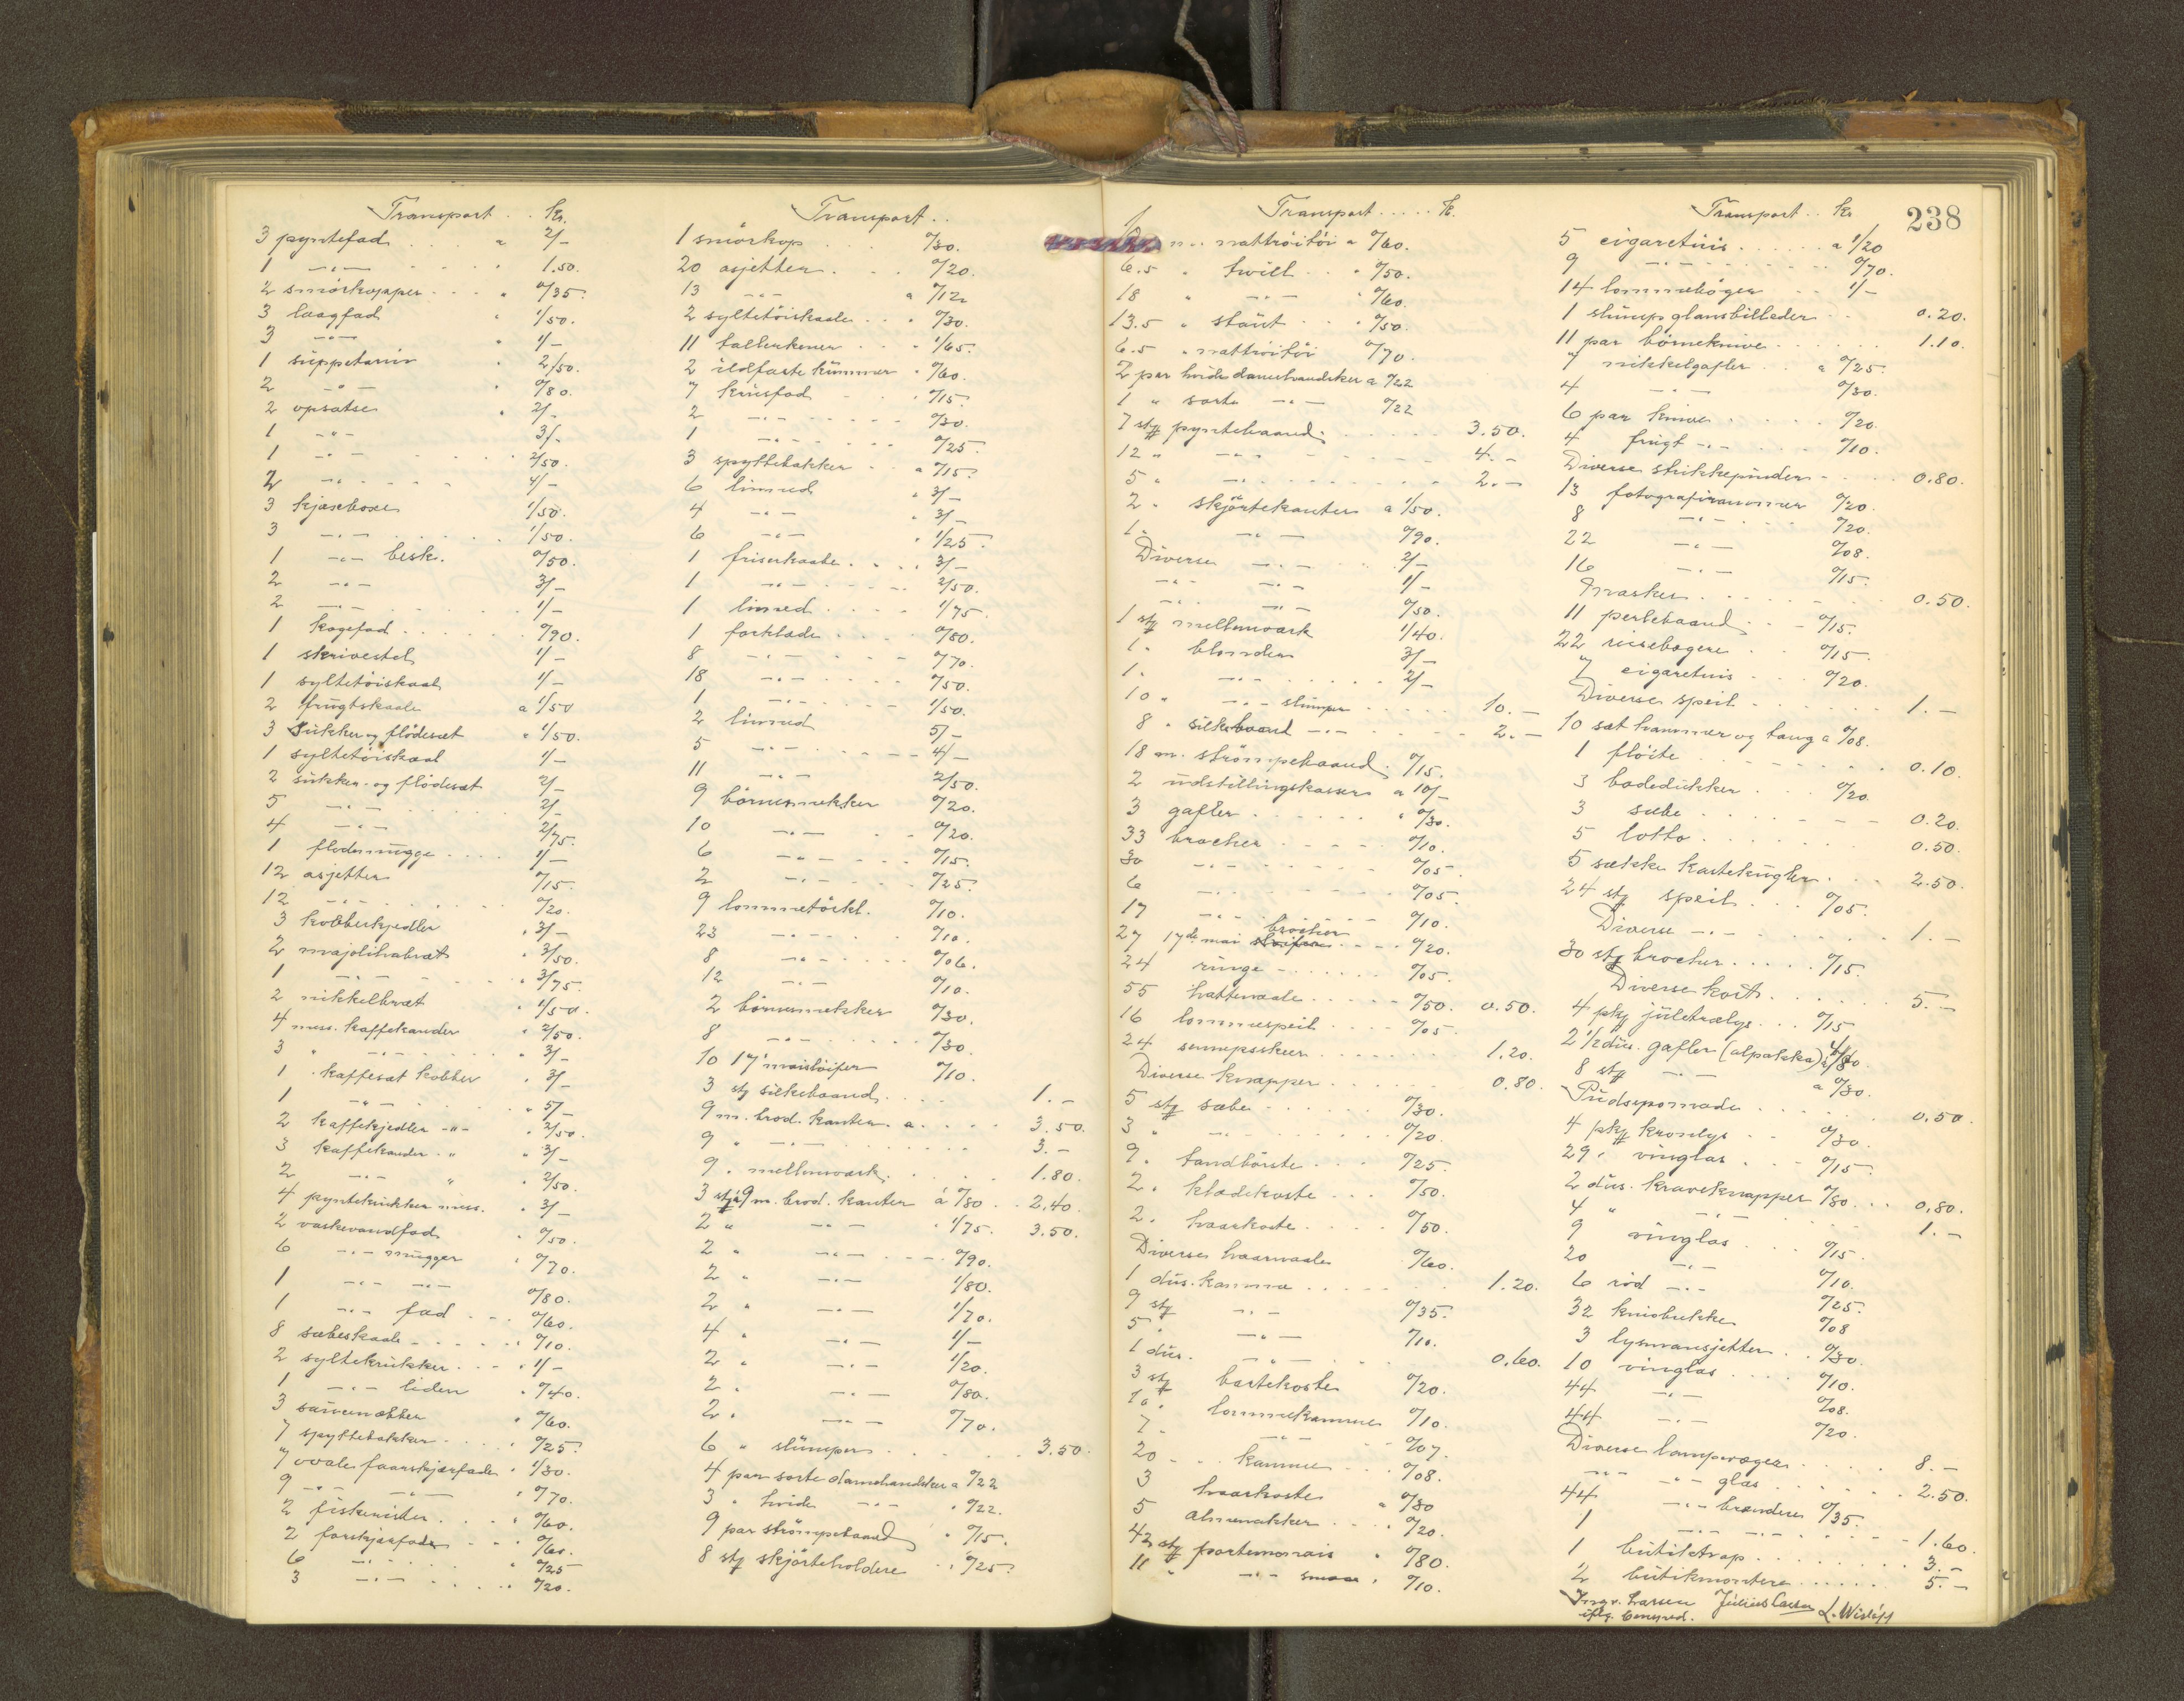 Transport . . Kr.
3 pyntefad . . " 2/-
1 -"- . . . " 1.50.
2 smørkopper . . . " 0/35.
3 laagfad " 1/50.
3 -"- " 1/-
1 suppeterrin " 2/50.
2 -"- 0/80.
2 opsatser " 2/-
1 -"- 3/-
1 -"- . . . . . 2/50.
2 -"- . . . . 4/-
3 kjæseboxer 1/50.
3 -"- . . . . 1/50.
1 -"- besk. 0/50.
2 -"- 3/-
2 -"- . . . . 1/-
1 kagefad . . . . . 0/90.
1 skrivestel 1/-
1 syltetöiskaal 1/-
2 frugtskaale a 1/50
3 Sukker og flödesæt " 1/50.
1 syltetöiskaal 1/-
2 sukker- og flödesæt 2/-
5 -"- . . . . 2/-
4 -"- 2/75.
1 flødemugge . . . . 1/-
12 asjetter 0/15.
12 -"- . . . . 0/20.
3 kobberkjedler " 3/-
2 majolikabræt " 3/50.
1 -"- . . . . " 3/75.
2 nikkelbræt " 1/50.
4 mess. kaffekander " 2/50.
3 " -"- . . . . " 3/-
1 " kaffesæt kobber " 3/-
1 -"- . . . . " 5/-
2 kaffekjedler -"- " 2/50.
3 kaffekander " " " 3/-
2 -"- " " 2/50.
4 pyntekrukker mess. " 3/-
2 vaskevandfad " 0/50.
6 -"- mugger " 0/70.
1 -"- -"- 0/80.
1 -"- fad . . . 0/60.
8 sæbeskaale . . . . . 0/10.
2 syltekrukker . . . " 1/-
1 -"- liden " 0/40.
3 " 0/60.
7 spyttebakker . . . . " 0/25.
7 ovale faarskjærfade " 1/30.
9 -"- -"- " 0/70.
2 fiskerister . . . . " 0/60.
2 forskjærfade . . . 0/60.
6 -"- . . . . " 0/25
3 -"- . . . . " 0/20.
Transport . .
1 smörkop . . . 0/30.
20 asjetter . . . 0/20.
13 -"- a 0/12
2 syltetöiskaale . . " 0/30.
11 tallerkener . . . " 1/65.
2 ildfaste kummer " 0/60.
7 krusfad - " 0/15.
2 -"- . . . . 0/30.
1 -"- . . . . 0/25.
3 spyttebakker . . a 0/15.
6 linned " 3/-
4 -"- " 3/-
6 -"- " 1/25.
1 friserkaabe . . . . 3/-
1 -"- . . . . 2/50.
1 linned . . . . 1/75.
1 forklæde . . . . 0/80.
8 -"- . . . 0/70.
18 -"- . . . . 0/50.
1 -"- . . . . 1/50.
2 linned 5/-
5 -"- . . . . 4/-
11 -"- 2/50.
9 börnesmekker 0/20.
10 -"- . . 0/20.
6 -"- . . . . 0/15.
2 -"- . . . . 0/25.
9 lommetörkl. 0/10.
23 -"- . . . 0/10.
8 -"- . . . 0/06.
12 -"- 0/10.
2 börnesmekker 0/30.
8 -"- . . . . 0/30.
10 17 maislöifer 0/10.
3 stk silkebaand . . . . 1.-
9 m. brod. kanter. a . . . . 3.50.
9 " -"- . . . . . 3.-
9 " mellemværk . . . . . 1.80.
3 stk á 9 m. brod. kanter á 0/80 . . 2.40.
2 " -"- " 1/75. 3.50.
2 " -"- . . . 0/90.
2 " -"- 1/80.
2 " -"- 1/70.
4 " -"- 1/-
2 " -"- 1/20.
2 " -"- 0/80.
2 " -"- 0/70.
6 " stumper . . . . 3.50.
4 par sorte damehandsker a 0/22
3 " hvide -"- " 0/22.
9 par strömpebaand " 0/15.
8 stk skjörteholdere . . 0/25.
Transport . . . . . Kr.
m. nattröitöi a 0/60.
6.5 " twill . . . 0/50.
18 " -"- " 0/60.
13.5 " stöut . . " 0/50.
6.5 " nattröitöi 0/70.
2 par hvide damehandsker a 0/22
1 " sorte -"- 0/22
7 stk pyntebaand . . . . . 3.50.
12 " -"- . . . . . 4.-
5 " -"- . . . . . 2.-
2 " skjörtekanter a 1/50.
1 " -"- 0/90.
Diverse -"- . . . 2/-
-"- -"- 1/-
-"- -"- 0/50.
1 stk mellemværk 1/40.
1 " blonder 3/-
1 " -"- . . . . . 2/-
10 " -"- stumper . . . . . 10.-
8 " silkebaand -"- . . . . . 2.-
18 m. strömpebaand . 0/15.
2 udstillingskasser a 10/-
3 gafler . . . . . . " 0/30.
33 brocher . . . . . 0/10.
30 -"- . . . . . 0/05.
6 -"- . . . . . 0/05.
17 -"- . . . . . 0/10.
27 17de mai brocher . . . . 0/20.
24 ringe . . . . . . 0/05.
55 hattenaale . . . . . 0/50. 0.50.
16 lommespeil . . . . 0/05.
24 sennepsskeer . . . . . . 1.20.
Diverse knapper . . . . . . 0.80.
5 stk sæbe . . . . . 0/30.
3 " -"- . . . . . 0/20.
9 " tandbörste . . . 0/25.
2 " klædekoste . . . 0/50.
2 " haarkoste . . . . 0/50.
Diverse haarnaale 0/60.
1 dus. kamme . . . . . . 1.20.
9 stk -"- 0/35.
5 " -"- 0/10.
1 dus. -"- . . 0.60.
3 stk bartekoste 0/20.
10 " lommekamme 0/10.
7 " -"- . . 0/07.
20 " kamme . . . 0/08.
3 haarkoste a 0/30
5 almanakker . . . . 0/20.
42 stk portemonais " 0/80.
11 " -"- smaa " 0/10.
Transport . . Kr
238
5 cigaretuis . . . . . a 1/20
9 -"- . . . . . 0/70.
14 lommebøger . . 1/-
1 slump glansbilleder . . 0.20.
11 par börneknive . . . . . . 1.10.
7 nikkelgafler . . a 0/25.
4 -"- 0/30.
6 par knive . . . . . 0/20.
4 frugt -"- . . . 0/10.
Diverse strikkepinder . . . . . 0.80.
13 fotografirammer 0/20.
8 -"- . . . . 0/20.
22 -"- 0/08.
16 -"- 0/15.
Masker . . . . . . . . 0.50.
11 perlebaand . . - 0/15.
22 reisebægere . . . 0/15.
7 cigaretuis . . . . 0/20.
Diverse speil . . . . . . 1.-
10 sæt hammer og tang a 0/08.
1 flöite . . . . . . . 0.10.
3 badedukker . . . 0/20.
3 sæbe . . . . . . . 0.20.
5 lotto . . . . . . . 0.50.
5 sække kastekugler . . . 2.50.
24 stk speil . . . 0/05.
Diverse -"- . . . . . 1.-
30 stk brocher . . . . . 0/15.
Diverse kort . . . . . . 5.-
4 pkg juletrælys . . . 0/15
2 1/2 dus. gafler (alpakka)
8 stk -"- a 0/30.
Pudsepomade . . . . . 0.50.
4 pkg kronlys . . 0/30.
29 " vinglas . . . 0/15.
2 dus. kraveknapper 0/80 . . . 0.80.
4 " -"- . . . 1.-
9 vinglas . . . 0/15.
20 -"- 0/10.
6 röd -"- 0/25.
32 knivbukke 0/08
3 lysmansjetter . . 0/30.
10 vinglas . . . . 0/10.
44 -"- 0/08.
44 -"- 0/20.
Diverse lampevæger . . . . . 8.-
-"- -"- glas . . . . . . 2.50.
44 -"- brændere 0/35.
1 -"- -"- . . . . . 1.60.
1 butiktrap . . . . . . . 3.-
2 butikmontere . . . . . . 5.-
Ingv. Larsen Julius Larsen L. Wisløff
iflg. bemynd.